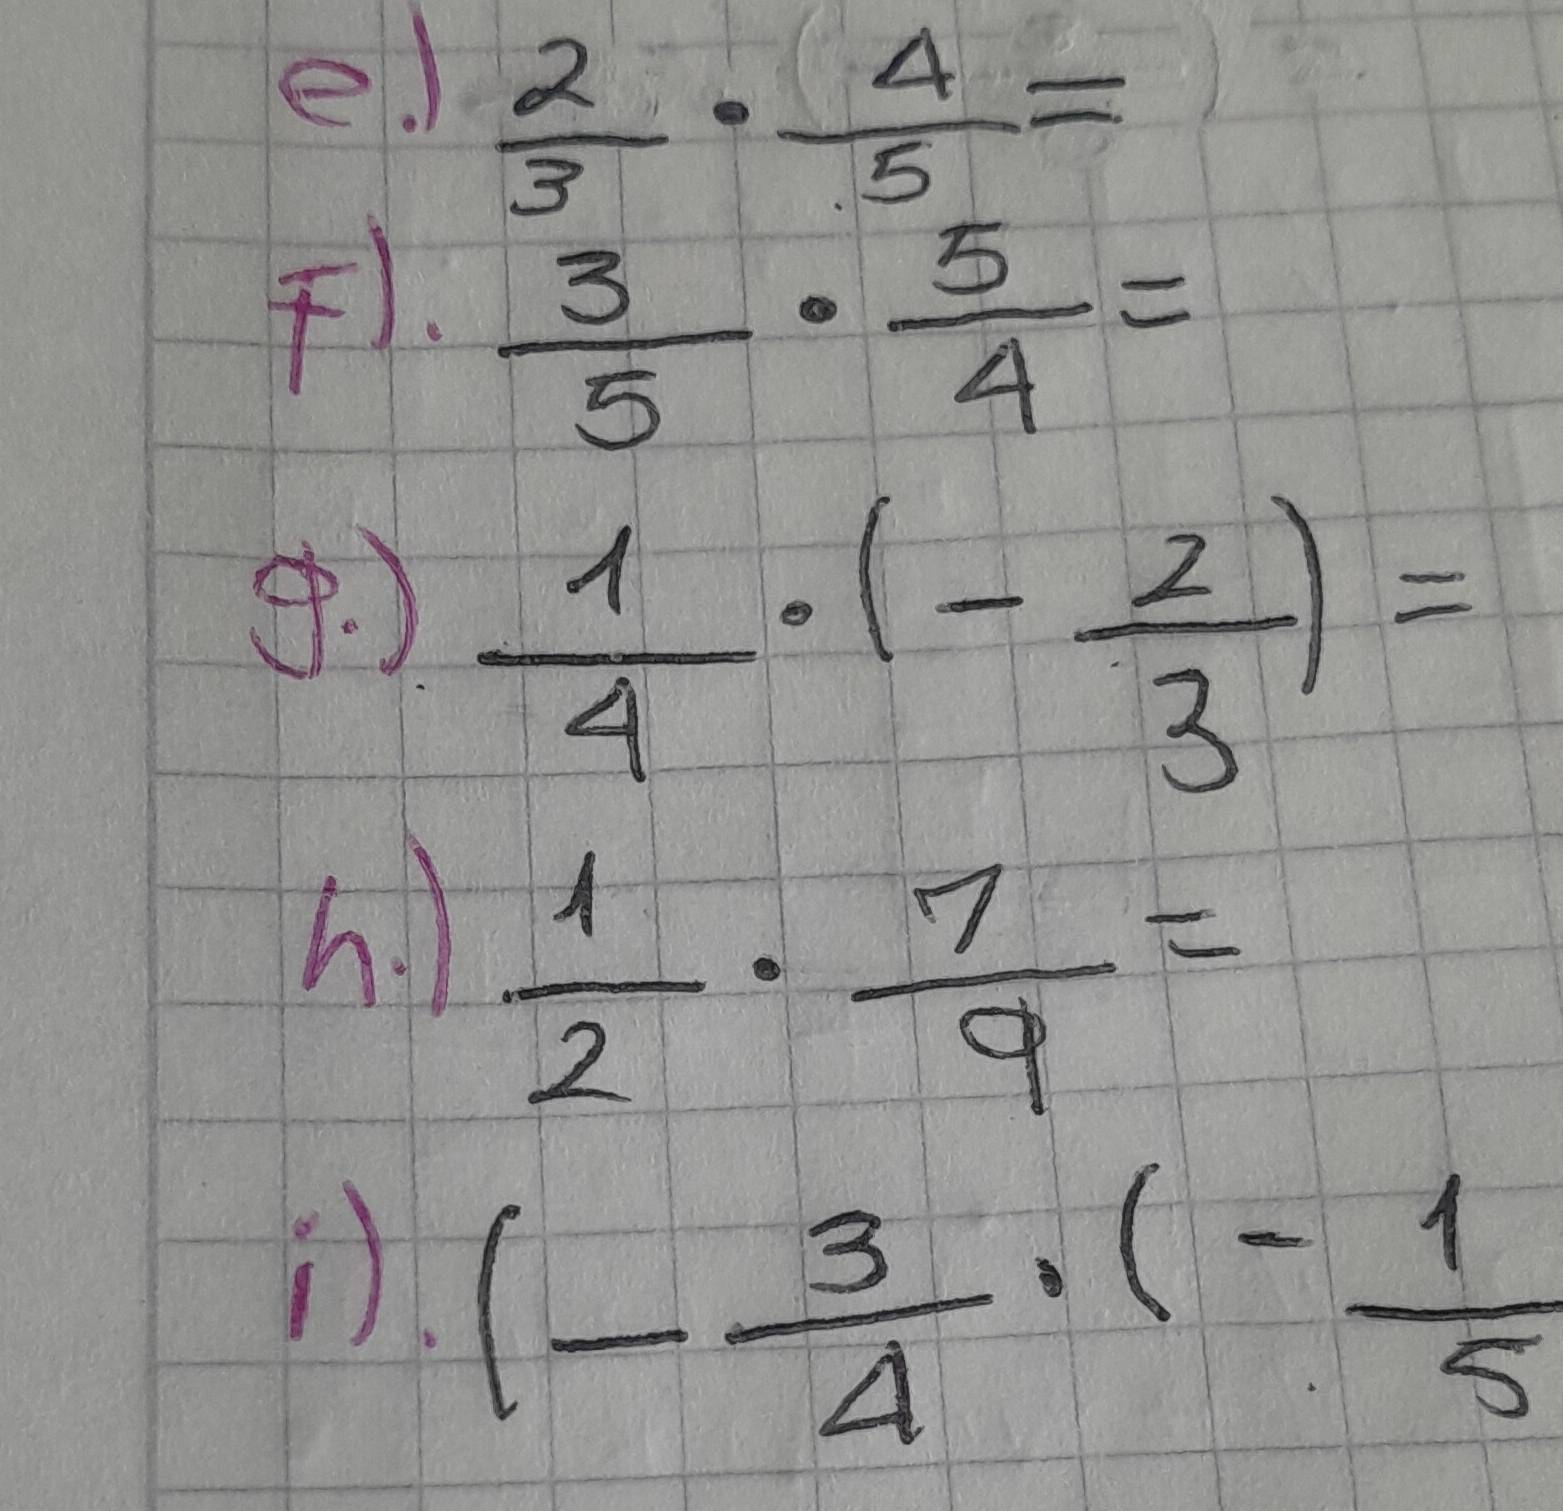 e.) 2/3 · 4/5 =
f). 3/5 · 5/4 =
g.) 1/4 · (- 2/3) =
h.) 1/2 · 7/9 =
i). (- 3/4 · (- 1/5